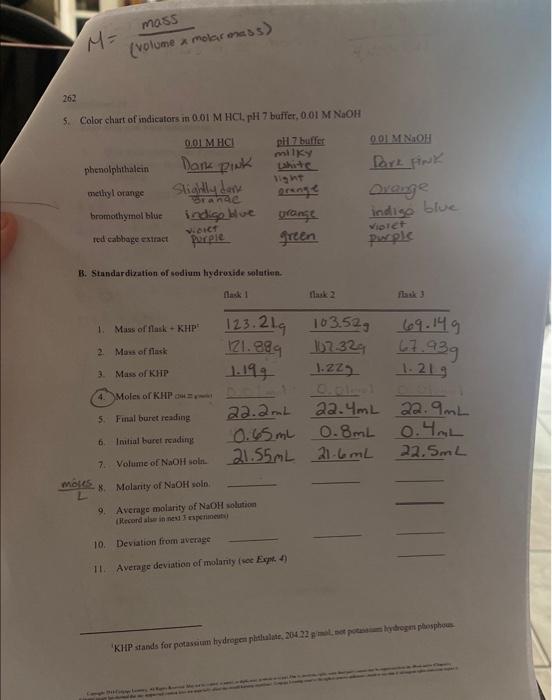 M = mass
(volume x molar mass)
262
5. Color chart of indicators in 0.01 M HCl, pH 7 buffer, 0.01 M NaOH
0.01 M HCl pH 7 buffer 0.01 M NaOH
phenolphthalein Dark pink milky white Dark Pink
methyl orange Slightly dark orange light orange Orange
bromothymol blue indigo blue orange indigo blue
red cabbage extract violet purple green violet purple
B. Standardization of sodium hydroxide solution.
flask 1 flask 2 flask 3
1. Mass of flask + KHP¹ 123.21g 103.52g 69.14g
2. Mass of flask 121.88g 102.32g 67.93g
3. Mass of KHP 1.19g 1.22g 1.21g
4. Moles of KHP
5. Final buret reading 22.2mL 22.4mL 22.9mL
6. Initial buret reading 0.65mL 0.8mL 0.4mL
7. Volume of NaOH soln. 21.55mL 21.6mL 22.5mL
moles
L
8. Molarity of NaOH soln.
9. Average molarity of NaOH solution
(Record also in next 3 experiments)
10. Deviation from average
11. Average deviation of molarity (see Expt. 4)
¹KHP stands for potassium hydrogen phthalate, 204.22 g/mol, not potassium hydrogen phosphous